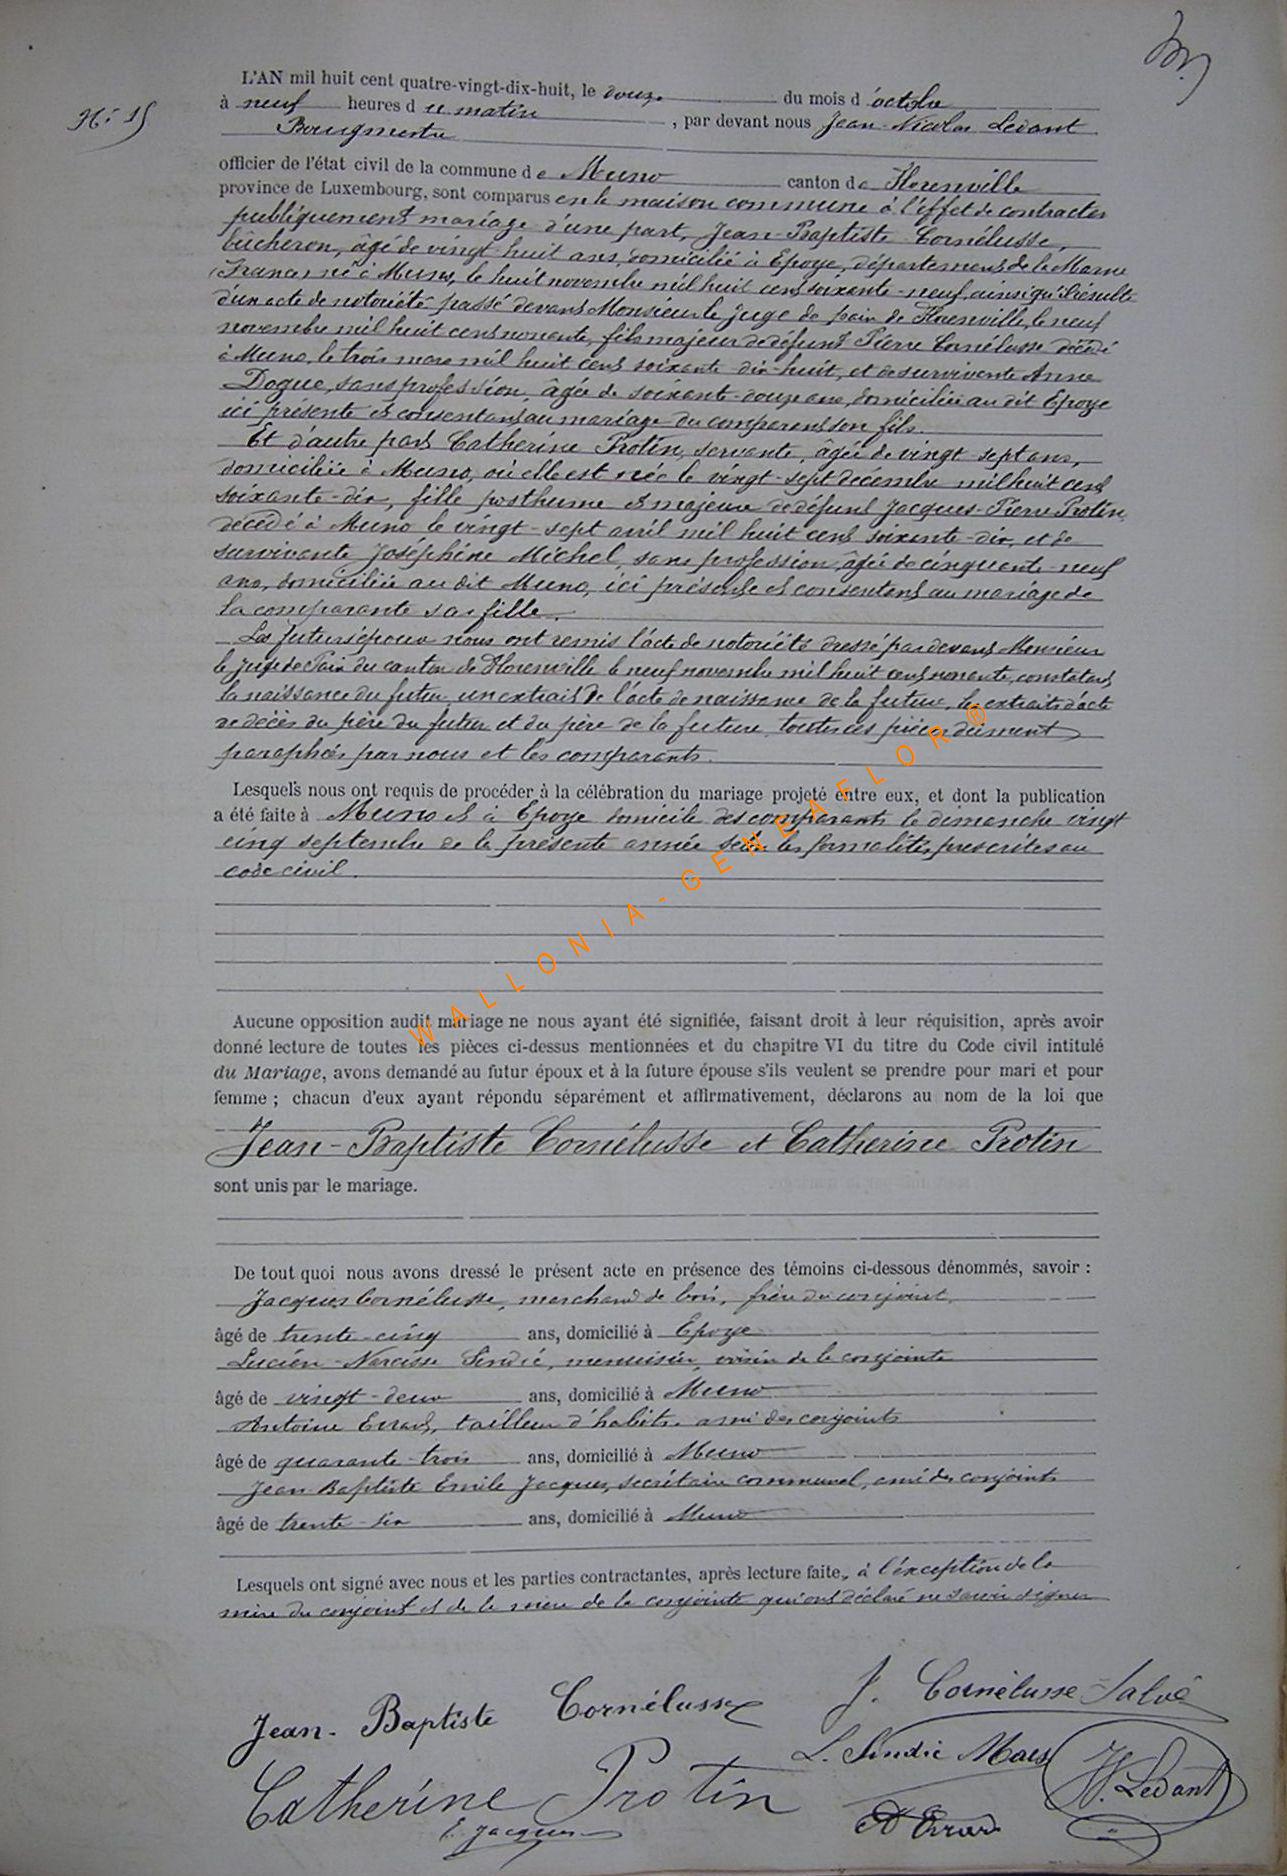 N° 15
L'AN mil huit cent quatre-vingt-dix-huit, le douze du mois d'octobre
à neuf heures du matin, par devant nous Jean-Nicolas Ledant
Bourgmestre
officier de l'état civil de la commune de Muno canton de Florenville
province de Luxembourg, sont comparus en la maison commune à l'effet de contracter
publiquement mariage d'une part, Jean-Baptiste Cornélusse,
bûcheron, âgé de vingt-huit ans, domicilié à Epoye, département de la Marne
(France) né à Muno, le huit novembre mil huit cent soixante-neuf, ainsi qu'il résulte
d'un acte de notoriété passé devant Monsieur le juge de paix de Florenville, le neuf
novembre mil huit cent nonante, fils majeur de défunt Pierre Cornélusse décédé
à Muno, le trois mars mil huit cent soixante-dix-huit, et de survivante Anne
Dogue, sans profession, âgée de soixante-douze ans, domiciliée au dit Epoye
ici présente et consentant au mariage du comparant son fils.
Et d'autre part Catherine Protin, servante, âgée de vingt-sept ans,
domiciliée à Muno, où elle est née le vingt-sept décembre mil huit cent
soixante-dix, fille posthume et majeure de défunt Jacques-Pierre Protin,
décédé à Muno le vingt-sept avril mil huit cent soixante-dix, et de
survivante Joséphine Michel, sans profession, âgée de cinquante-neuf
ans, domiciliée au dit Muno, ici présente et consentant au mariage de
la comparante sa fille.
Les futurs époux nous ont remis l'acte de notoriété dressé par devant Monsieur
le Juge de Paix du canton de Florenville le neuf novembre mil huit cent nonante, constatant
la naissance du futur, un extrait de l'acte de naissance de la future, les extraits d'acte
de décès du père du futur et du père de la future, toutes ces pièces dûment
paraphées par nous et les comparants.
Lesquels nous ont requis de procéder à la célébration du mariage projeté entre eux, et dont la publication
a été faite à Muno et à Epoye domicile des comparants le dimanche vingt
cinq septembre de la présente année selon les formalités prescrites au
code civil.
WALLONIA-GENEAFLOR ®
Aucune opposition audit mariage ne nous ayant été signifiée, faisant droit à leur réquisition, après avoir
donné lecture de toutes les pièces ci-dessus mentionnées et du chapitre VI du titre du Code civil intitulé
du Mariage, avons demandé au futur époux et à la future épouse s'ils veulent se prendre pour mari et pour
femme ; chacun d'eux ayant répondu séparément et affirmativement, déclarons au nom de la loi que
Jean-Baptiste Cornélusse et Catherine Protin
sont unis par le mariage.
De tout quoi nous avons dressé le présent acte en présence des témoins ci-dessous dénommés, savoir :
Jacques Cornélusse, marchand de bois, frère du conjoint,
âgé de trente-cinq ans, domicilié à Epoye
Lucien-Narcisse Sindic, menuisier, voisin de la conjointe
âgé de vingt-deux ans, domicilié à Muno
Antoine Errard, tailleur d'habits, ami des conjoints
âgé de quarante-trois ans, domicilié à Muno
Jean-Baptiste Emile Jacques, secrétaire communal, ami des conjoints
âgé de trente-six ans, domicilié à Muno
Lesquels ont signé avec nous et les parties contractantes, après lecture faite, à l'exception de la
mère du conjoint et de la mère de la conjointe qui ont déclaré ne savoir signer
Jean-Baptiste Cornélusse J. Cornélusse-Salvé
L. Sindic Maes
Catherine Protin JN. Ledant
E. Jacques A Errard